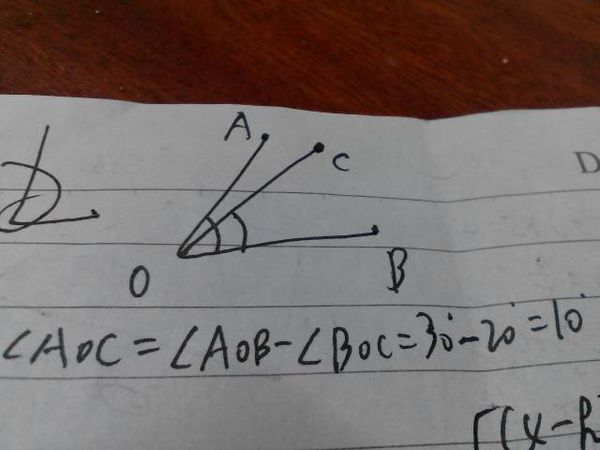 A
C
D
O
B
∠AOC=∠AOB-∠BOC=30°-20°=10°